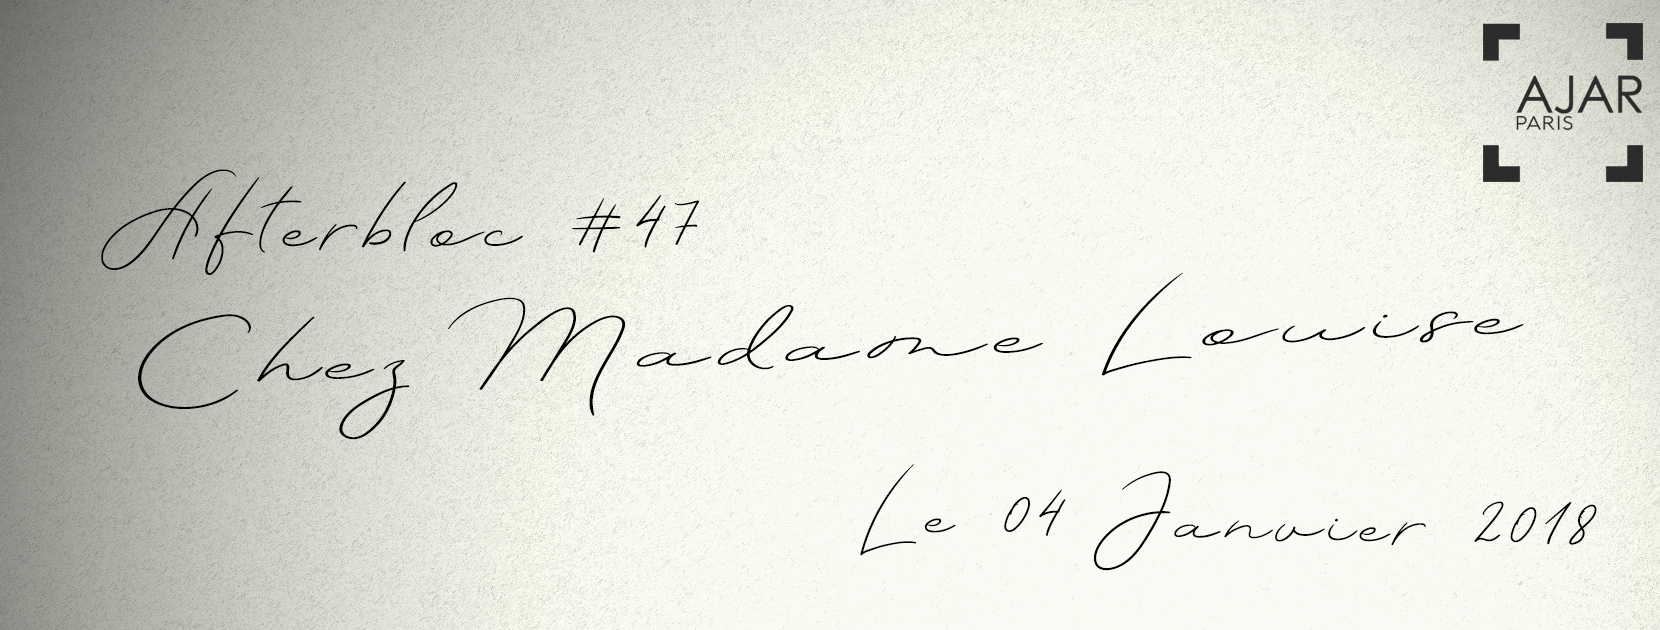 AJAR
PARIS
Afterbloc #47
Chez Madame Louise
Le 04 Janvier 2018